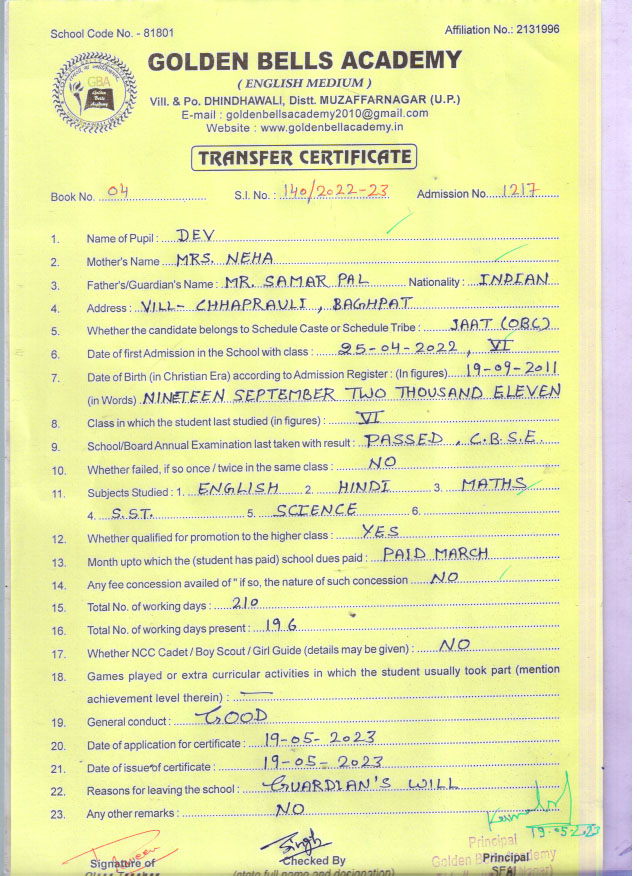 School Code No. - 81801 Affiliation No.: 2131996
GBA
Golden
Bells
Academy
GOLDEN BELLS ACADEMY
( ENGLISH MEDIUM )
Vill. & Po. DHINDHAWALI, Distt. MUZAFFARNAGAR (U.P.)
E-mail : goldenbellsacademy2010@gmail.com
Website : www.goldenbellacademy.in
TRANSFER CERTIFICATE
Book No. 04 S.I. No. : 140/2022-23 Admission No. 1217
1. Name of Pupil : DEV
2. Mother's Name MRS. NEHA
3. Father's/Guardian's Name : MR. SAMAR PAL Nationality : INDIAN
4. Address : VILL- CHHAPRAULI , BAGHPAT
5. Whether the candidate belongs to Schedule Caste or Schedule Tribe : JAAT (OBC)
6. Date of first Admission in the School with class : 25-04-2022 , VI
7. Date of Birth (in Christian Era) according to Admission Register : (In figures) 19-09-2011
(in Words) NINETEEN SEPTEMBER TWO THOUSAND ELEVEN
8. Class in which the student last studied (in figures) : VI
9. School/Board Annual Examination last taken with result : PASSED , C.B.S.E.
10. Whether failed, if so once / twice in the same class : NO
11. Subjects Studied : 1. ENGLISH 2. HINDI 3. MATHS
4. S.ST. 5. SCIENCE 6.
12. Whether qualified for promotion to the higher class : YES
13. Month upto which the (student has paid) school dues paid : PAID MARCH
14. Any fee concession availed of " if so, the nature of such concession NO
15. Total No. of working days : 210
16. Total No. of working days present : 196
17. Whether NCC Cadet / Boy Scout / Girl Guide (details may be given) : NO
18. Games played or extra curricular activities in which the student usually took part (mention
achievement level therein) : —
19. General conduct : GOOD
20. Date of application for certificate : 19-05-2023
21. Date of issue of certificate : 19-05-2023
22. Reasons for leaving the school : GUARDIAN'S WILL
23. Any other remarks : NO
19-05-2023
Principal
Golden Bells Academy
Singh
Signature of Checked By Principal
(state full name and designation) SEAL